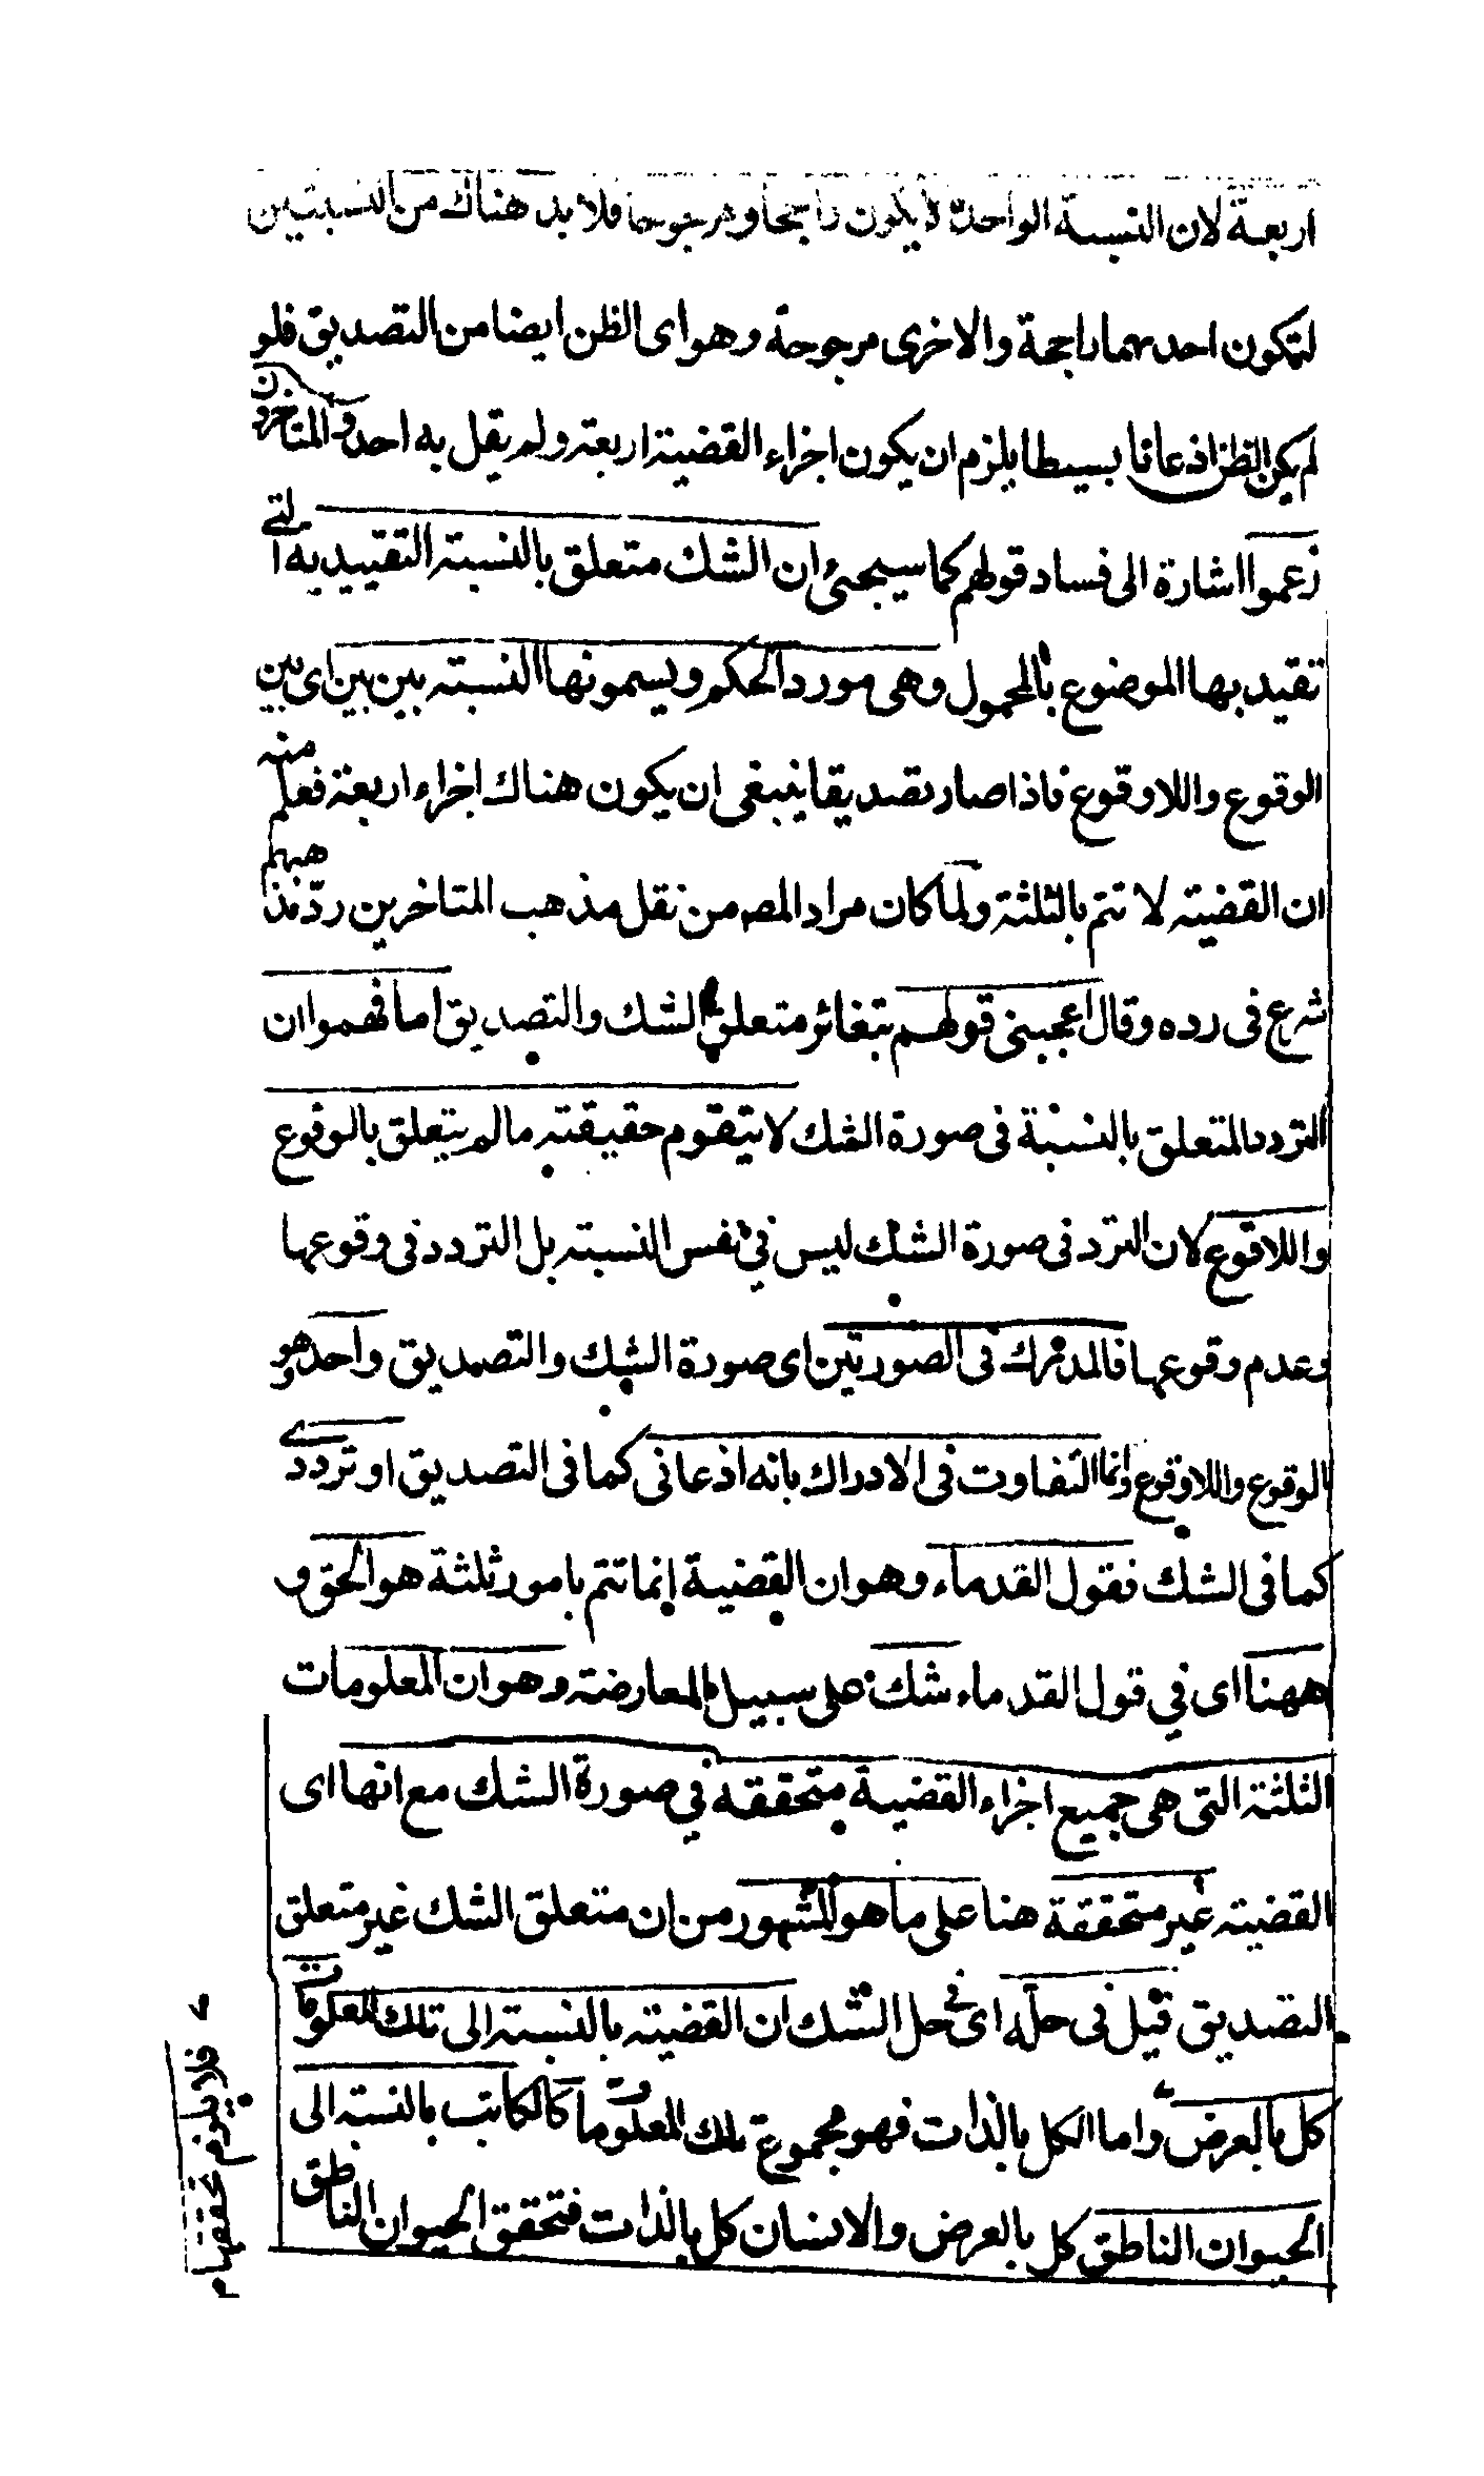 اربعة لان النسبة الواحدة لا يكون راجحا ومرجوحا فلا بد هناك من النسبتين
لتكون احدىهما راجحة والاخرى مرجوحة وهو اى الظن ايضا من التصديق فلو
لم يكن الظن اذعانا بسيطا يلزم ان يكون اجزاء القضية اربعة ولم يقل به احد والمتاخرون
زعموا اشارة الى فساد قولهم كما سيجئ ان الشك متعلق بالنسبة التقييديه التے
تقيد بها الموضوع بالمحمول وهى مورد الحكم ويسمونها النسبته بين بين اى بين
الوقوع واللاوقوع فاذا صار تصديقا ينبغى ان يكون هناك اجزاء اربعة فعلم منه
ان القضيته لا تتم بالثلثة ولما كان مراد المصم من نقل مذهب المتاخرين ردّ مذهبهم
شرع فى رده وقال اعجبنى قولهم بتغائر متعلق الشك والتصديق اما فهموا ان
التردد المتعلق بالنسبة فى صورة الشك لا يتقوم حقيقته مالم يتعلق بالوقوع
واللاقوع لان الترد فى صورة الشك ليس في نفس النسبته بل التردد فى وقوعها
وعدم وقوعها فالمدرك فى الصورتين اى صورة الشك والتصديق واحد وهو
الوقوع واللاوقوع وانما التفاوت فى الادراك بانه اذعانى كما فى التصديق او ترددے
كما فى الشك فقول القدماء وهو ان القضية انما تتم بامور ثلثة هو الحق و
ههنا اى في قول القدماء شك على سبيل المعارضة وهو ان المعلومات
الثلثة التى هى جميع اجزاء القضية متحققه في صورة الشك مع انها اى
القضيته غير متحققة هنا على ما هو المشهور من ان متعلق الشك غير متعلق
التصديق قيل فى حله اى فى حل الشك ان القضيته بالنسبته الى تلك المعلومات
كل بالعرض واما الكل بالذات فهو مجموع تلك المعلومات كالكاتب بالنسبته الى
الحيوان الناطق كل بالعرض والانسان كل بالذات فتحقق الحيوان الناطق
فلا يلزم تحققها